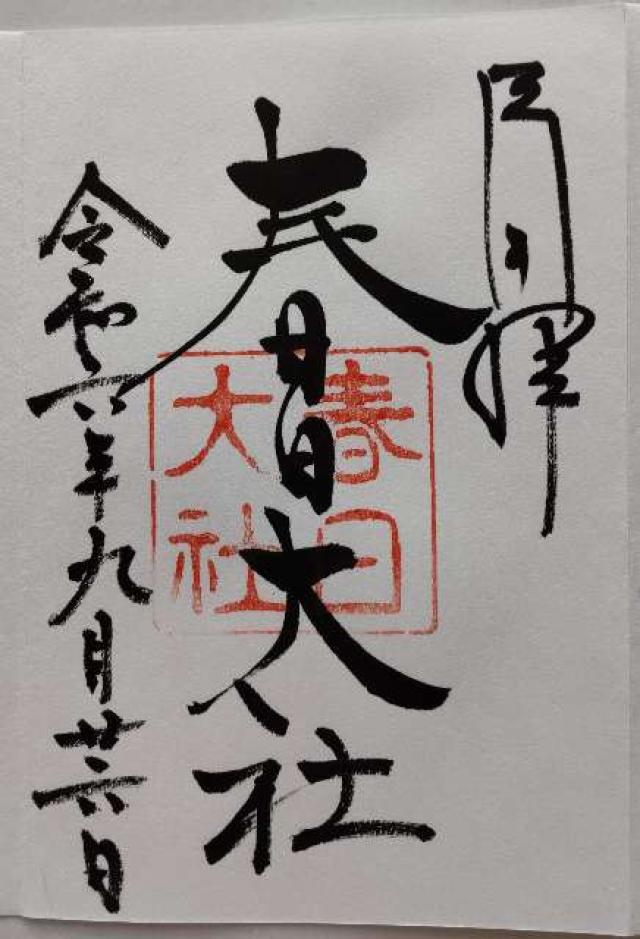 月日拝
春日大社
春日
大社
令和六年九月廿六日